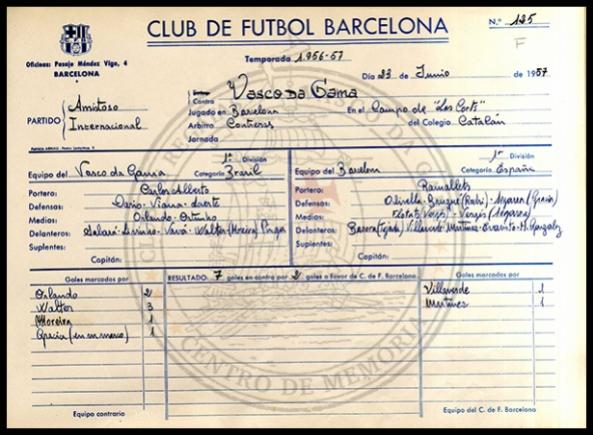 CLUB DE FUTBOL BARCELONA
N.º 125
F
Oficinas: Pasaje Méndez Vigo, 4
BARCELONA
Temporada 1.956-57
Día 23 de Junio de 1957
Contra Vasco da Gama
PARTIDO Amistoso Internacional
Jugado en Barcelona En el Campo de "Las Corts"
Arbitro Contreras del Colegio Catalán
Jornada
1ª División
Equipo del Vasco da Gama Categoría Brasil
Portero: Carlos Alberto
Defensas: Dario-Viana-
Medios: Orlando-
Delanteros: -Livinho-Vavá-Walter (Moreira)
Suplentes:
Capitán:
1ª División
Equipo del Barcelona Categoría España
Portero: Ramallets
Defensas: Olivella-Brugué (Rodri)-Segarra (Gracia)
Medios: Flotats Vergés-Vergés (Segarra)
Delanteros: Basora (Tejada), Villaverde Martinez-Evaristo-M. Gonzalez
Suplentes:
Capitán:
Goles marcados por
RESULTADO: 7 goles en contra por 2 goles a favor de C. de F. Barcelona
Goles marcados por
Orlando 2
Walter 3
Moreira 1
Gracia (en su marco) 1
Villaverde 1
Martinez 1
Equipo contrario
Equipo del C. de F. Barcelona
CENTRO DE MEMÓRIA